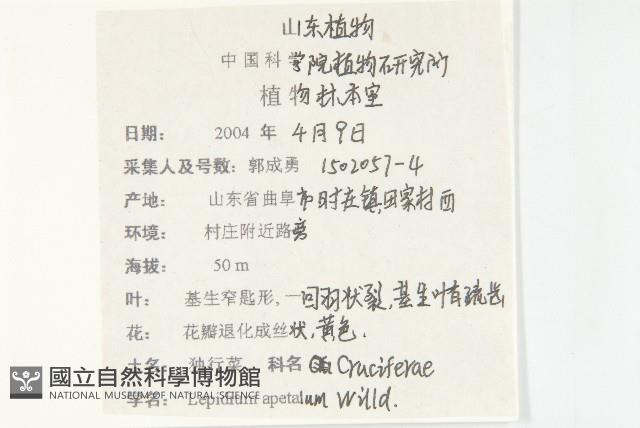 山东植物
中国科学院植物研究所
植物标本室
日期: 2004 年 4月9日
采集人及号数: 郭成勇 1502057-4
产地: 山东省曲阜市时庄镇,田家村西
环境: 村庄附近路旁
海拔: 50 m
叶: 基生窄匙形,一回羽状裂,基生叶有疏齿
花: 花瓣退化成丝状,黄色.
土名: 独行菜 科名 Cruciferae
國立自然科學博物館
NATIONAL MUSEUM OF NATURAL SCIENCE
学名: Lepidium apetalum Willd.